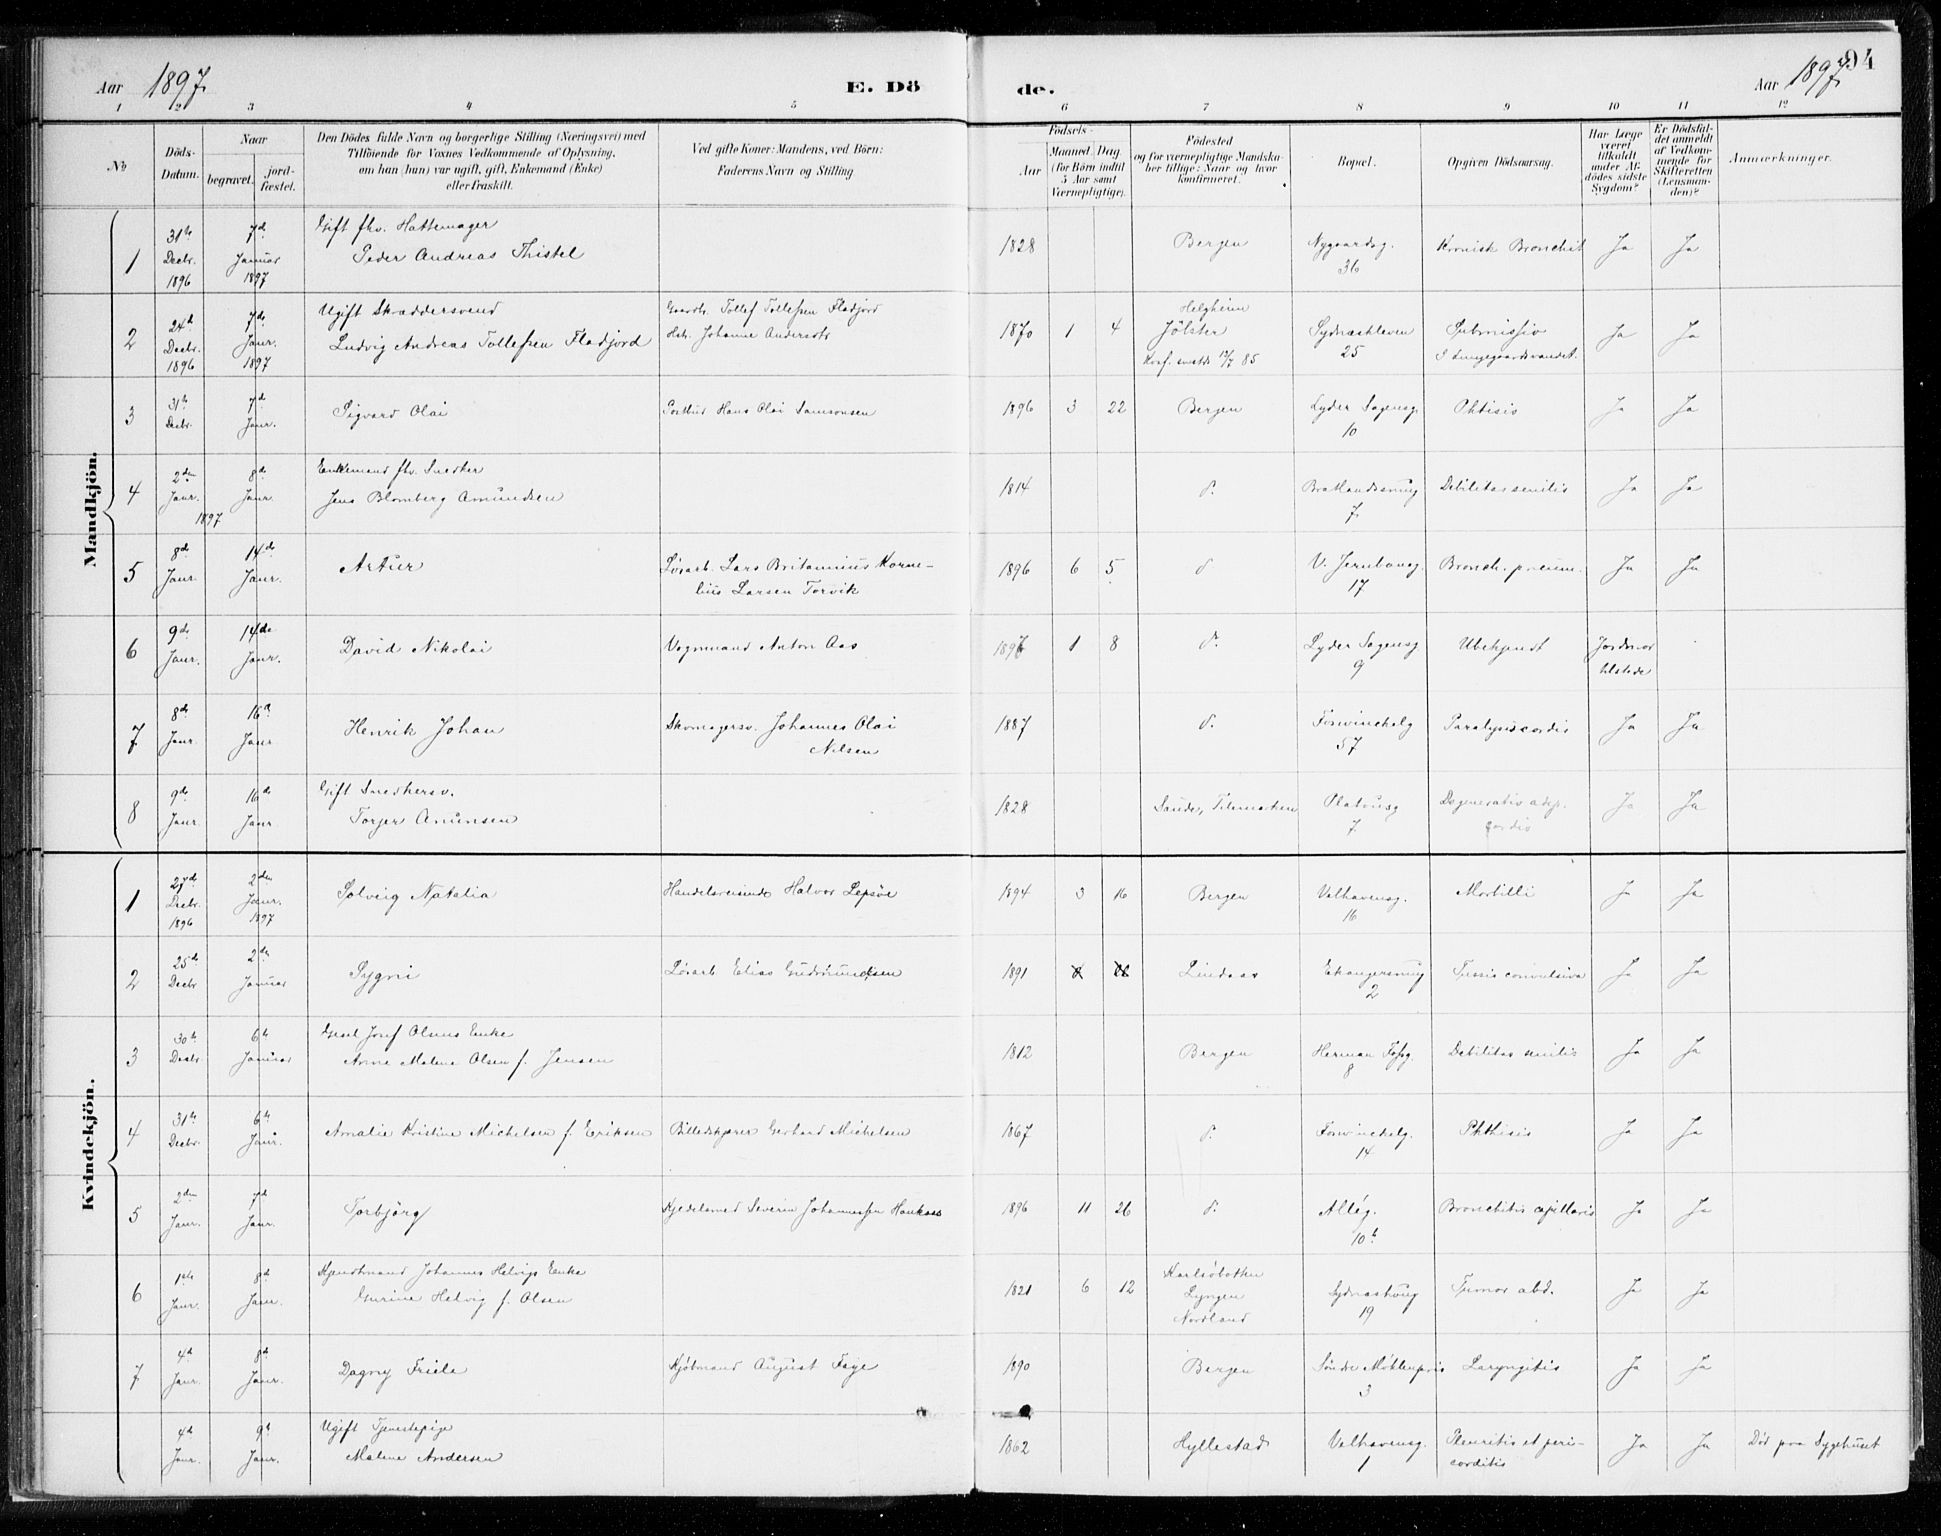 Aar 1897. E. Dö de. Aar 1897. 94
1 2 3 4 5 6 7 8 9 10 11 12
No
Döds-Datum.
Naar
begravet.
jord-fæstet.
Den Dödes fulde Navn og borgerlige Stilling (Næringsvei) med
Tilföiende for Voxnes Vedkommende af Oplysning,
om han (hun) var ugift, gift, Enkemand (Enke)
eller fraskilt.
Ved gifte Koner: Mandens, ved Börn:
Faderens Navn og Stilling
Födsels-
Aar
Maaned Dag
(for Börn indtil
5 Aar samt
Værnepligtige).
Födested
og for værnepligtige Mandska-
ber tillige: Naar og hvor
konfirmeret.
Bopæl.
Opgiven Dödsaarsag.
Har Læge
været
tilkaldt
under Af-
dödes sidste
Sygdom?
Er Dödsfal-
det anmeldt
af Vedkom-
mende for
Skifteretten
(Lensman-
den)?
Anmærkninger.
Mandkjön.
1 31te Decbr. 1896 7de Januar 1897 Gift fhv. Hattemager
Peder Andreas Thistel 1828 Bergen Nygaardsg. 36 Kronisk Bronchit Ja Ja
2 24de Decbr. 1896 7de Janr. 1897 Ugift Skræddersvend
Ludvig Andreas Tollefsen Fladjord
Gaardbr. Tollef Tollefsen Fladjord
Hstr. Johanne Andersdtr 1870 1 4
Helgheim
Jölster
Konf. smstds 12/7 85
Sydneskleven 25
Submissio
I Lungegaardsvandet. Ja Ja
3 31te Decbr. 7de Janr. Sigvard Olai Postbud Hans Olai Samsonsen 1896 3 22 Bergen Lyder Sagensg. 10 Phtisis Ja Ja
4 2den Janr. 1897 8de Janr. Enkemand fhv. Snedker
Jens Blomberg Amundsen 1814 d. Bratlandssmug 7. Debilitas senilis Ja Ja
5 8de Janr. 14de Janr. Artur Løsarb. Lars Britannius Korne-
lius Larsen Torvik 1896 6 5 d V. Jernbaneg. 17 Bronch. pneum. Ja Ja
6 9de Janr. 14de Janr. David Nikolai Vognmand Anton Aas 1896 1 8 d. Lyder Sagensg 9 Ubekjendt Jordmor
tilstede
7 8de Janr. 16de Janr. Henrik Johan Skomagersv. Johannes Olai
Nilsen 1887 d. Forvinckelg 57 Paralysis cordis Ja Ja
8 9de Janr. 16de Janr Gift Snedkersv.
Torjer Anunsen 1828 Saude, Tilemarken Platousg 7 Degeneratio adip.
cordis Ja Ja
Kvindekjön.
1 27de Decbr. 1896 2den Janr. 1897 Solveig Natalia Handelsreisende Halvor Lepsöe 1894 3 16 Bergen Velhavensg. 16 Morbilli Ja Ja
2 25de Decbr 2den Januar Sygni Løsarb Elias Gudmundsen 1891 Lindaas Ekangersmug 2 Tussis convulsiva Ja Ja
3 30te Decbr 6te Januar Josef Olsens Enke
Anne Malene Olsen f. Jensen 1812 Bergen Herman Fossg. 8 Debilitas senilis Ja Ja
4 31te Decbr. 6te Janr. Amalie Kristine Michelsen f. Eriksen Billedskjærer Gerhard Michelsen 1867 d. Forvinckelg. 14 Phthisis Ja Ja
5 2den Janr. 7de Janr. Torbjörg Kjedelsmed Severin Johannessen Haukaas 1896 11 26 d. Allég. 10b Bronchitis capillaris Ja Ja
6 1ste Janr. 8de Janr. Kjendtmand Johannes Helvigs Enke
Gurine Helvig f. Olsen 1821 6 12 Karlsöbotten
Lyngen
Nordland Sydneshoug 19 Tumor abd. Ja Ja
7 4de Janr. 8de Janr. Dagny Friele Kjöbmand August Faye 1890 Bergen Söndre Möhlenpris 3 Laryngitis Ja Ja
4de Janr. 9de Janr. Ugift Tjenestepige
Malene Andersen 1862 Hyllestad Velhavensg. 1 Pleuritis et peri-
corditis Ja Ja Död paa Sygehuset